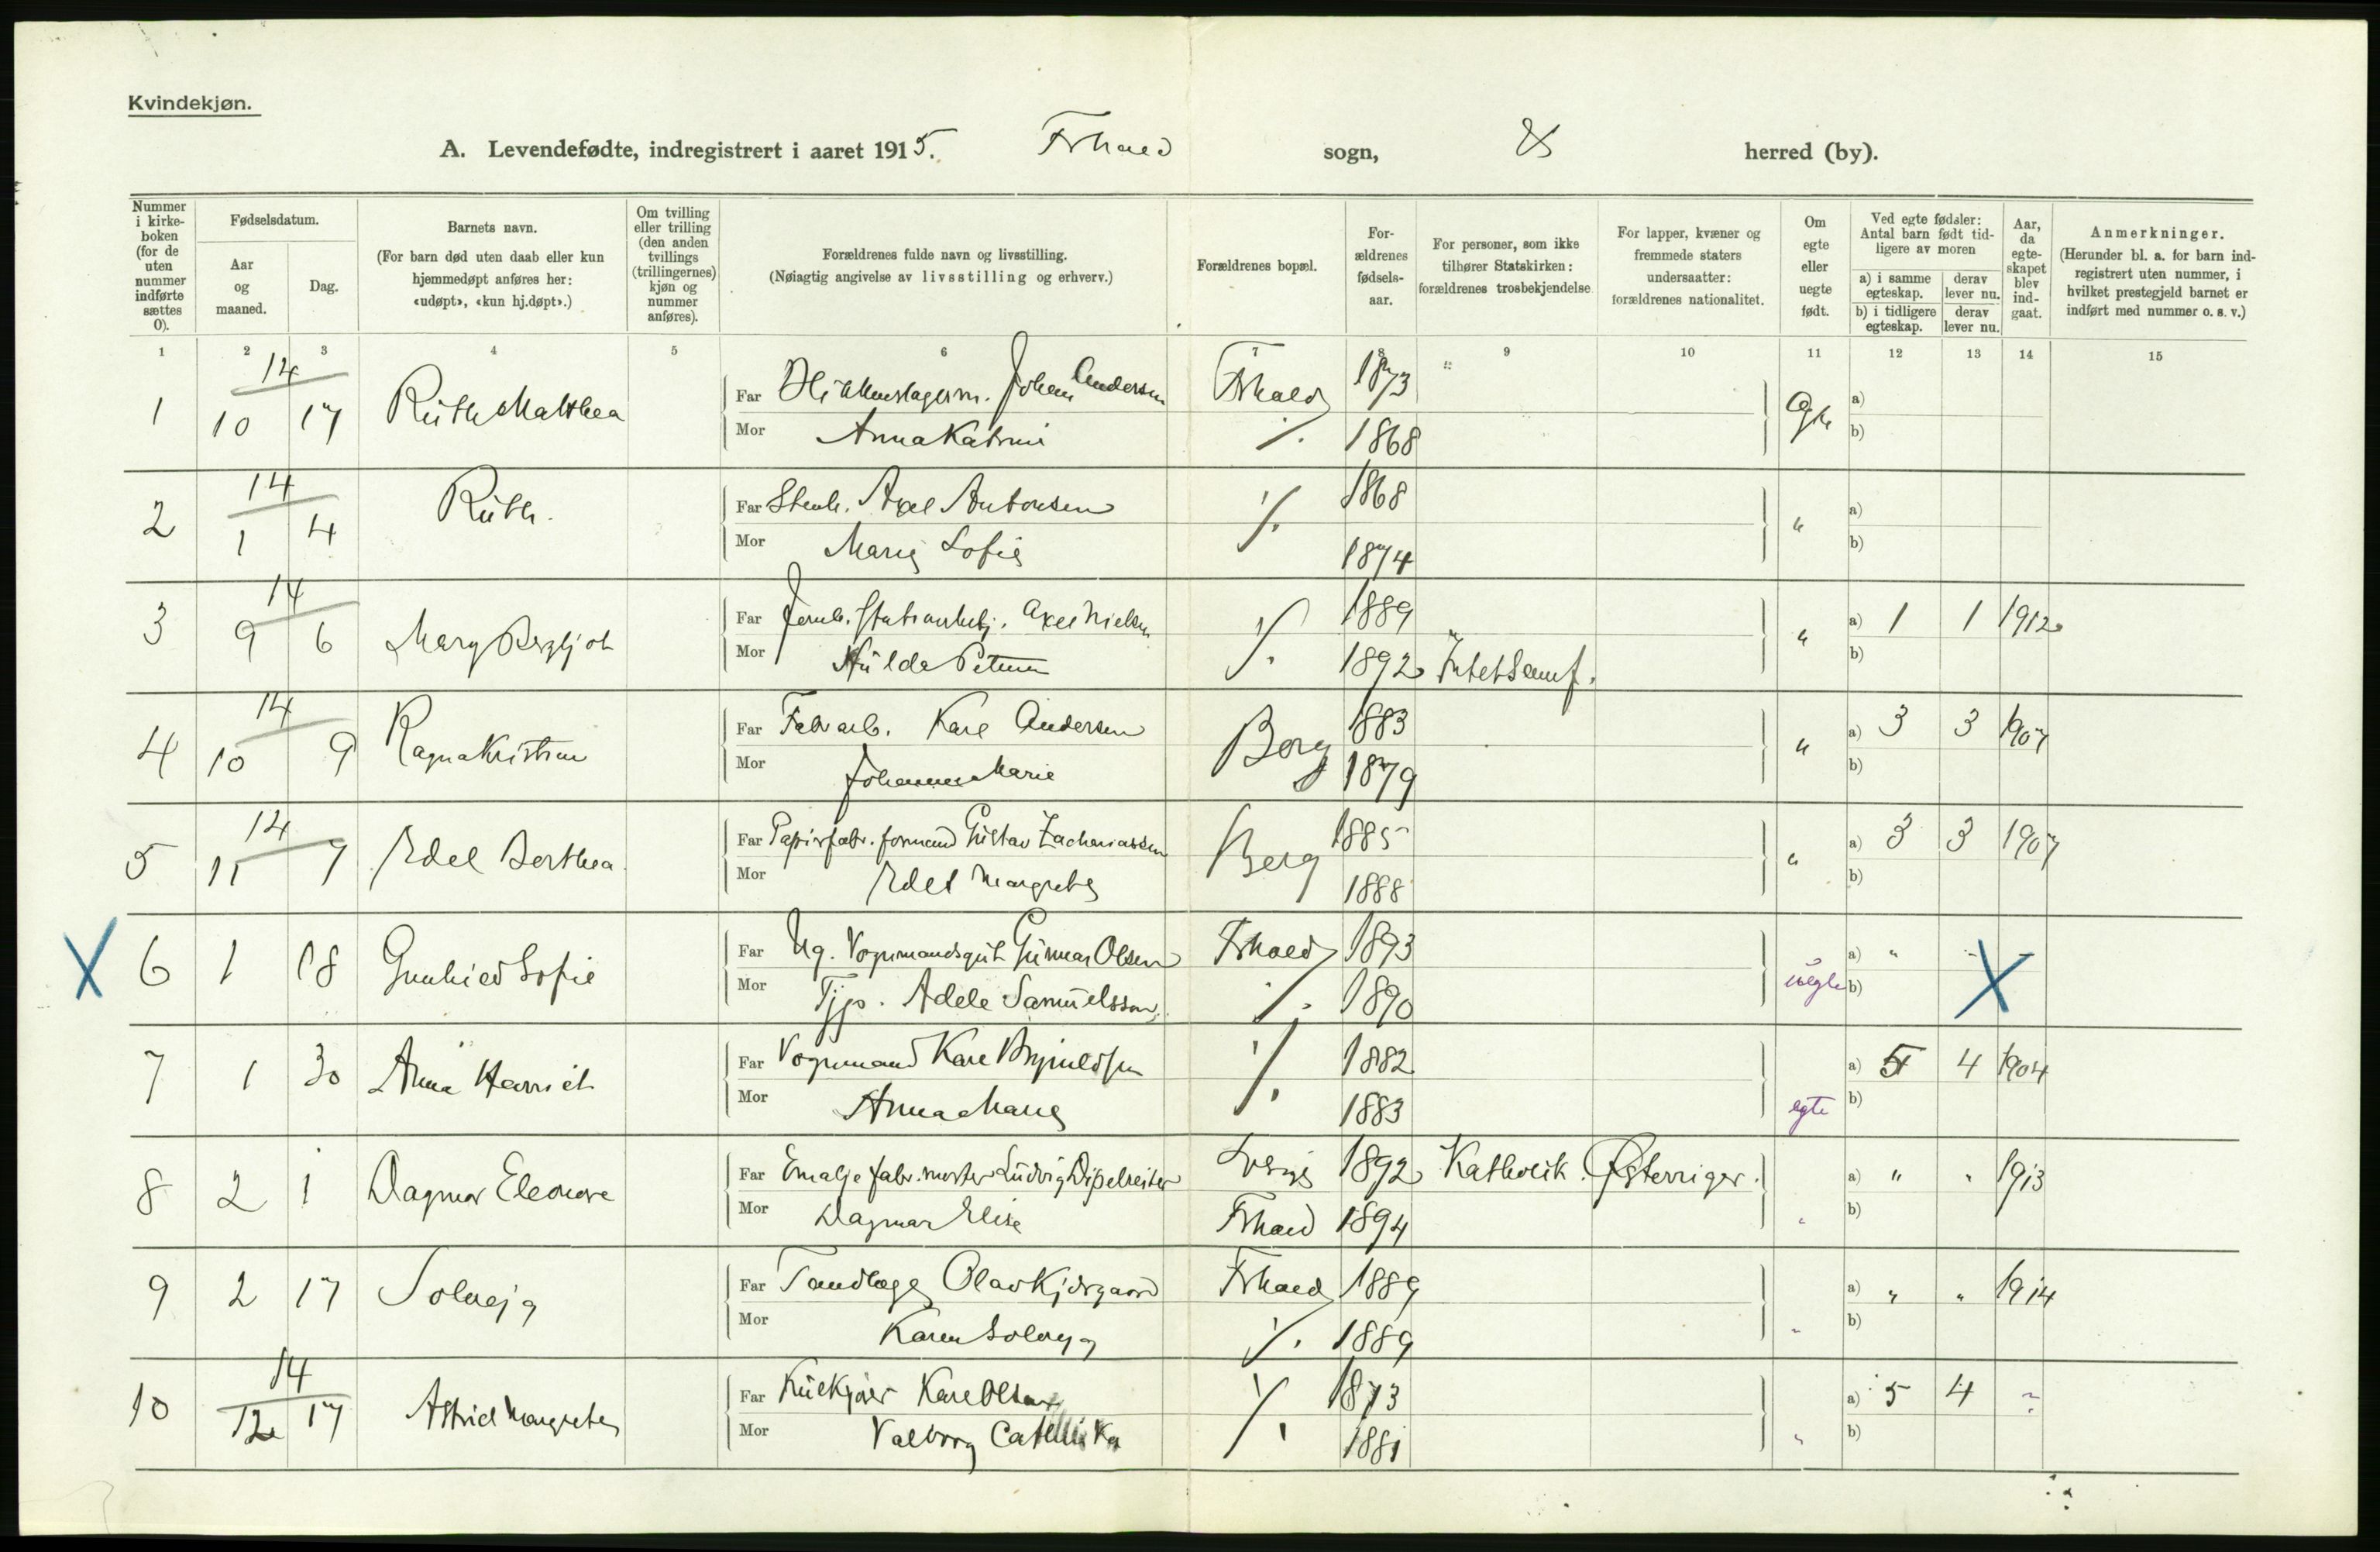 Kvindekjøn.
A. Levendefødte, indregistrert i aaret 1915. Frhald sogn, herred (by).
Nummer i kirke-boken (for de uten nummer indførte sættes 0).
Fødselsdatum.
Aar og maaned.
Dag.
Barnets navn.
(For barn død uten daab eller kun hjemmedøpt anføres her: «udøpt», «kun hj.døpt».)
Om tvilling eller trilling (den anden tvillings (trillingernes) kjøn og nummer anføres).
Forældrenes fulde navn og livsstilling.
(Nøiagtig angivelse av livsstilling og erhverv.)
Forældrenes bopæl.
For-ældrenes fødsels-aar.
For personer, som ikke tilhører Statskirken: forældrenes trosbekjendelse
For lapper, kvæner og fremmede staters undersaatter: forældrenes nationalitet.
Om egte eller uegte født.
Ved egte fødsler: Antal barn født tid-ligere av moren
a) i samme egteskap. derav lever nu.
b) i tidligere egteskap. derav lever nu.
Aar, da egte-skapet blev ind-gaat.
Anmerkninger.
(Herunder bl. a. for barn ind-registrert uten nummer, i hvilket prestegjeld barnet er indført med nummer o. s. v.)
1 2 3 4 5 6 7 8 9 10 11 12 13 14 15
14
1 10 17 Ruth Malthea Far Johan Andersen Frhald 1873 Egte a)
Mor Anna Katrine ./. 1868 b)
14
2 1 4 Ruth. Far Stenh. Axel Antonsen ./. 1868 " a)
Mor Marie Sofie 1874 b)
14
3 9 6 Mary Bergljot Far Axel Nielsen ./. 1889 " a) 1 1 1912
Mor Hulda Petrine 1892 Intet Samf. b)
14
4 10 9 Ragna Kristine Far Fabr arb. Karl Andersen Berg 1883 " a) 3 3 1907
Mor Johanne Marie 1879 b)
14
5 11 7 Edel Berthea Far Papirfabr. formand Gustav Zachariassen Berg 1885 " a) 3 3 1907
Mor Edel Margrethe 1888 b)
X 6 1 18 Gunhild Sofie Far Ug. Vognmandsgut Gunnar Olsen Frhald 1893 uegte a) " " X
Mor Tjp. Adele Samuelsson ./. 1890 b)
7 1 30 Anna Harriet Far Vognmand Karl Brynildsen ./. 1882 a) 5 4 1904
Mor Anna Marie 1883 egte b)
8 2 1 Dagmar Eleonore Far Emalje fabr. mester Ludvig 1892 Katholik. Østerriger. a) " " 1913
Mor Dagmar Elise Frhald 1894 " b)
9 2 17 Solveig Far Tandlæge Olav Kjørgaard Frhald 1889 a) " " 1914
Mor Karen Solveig ./. 1889 " b)
14
10 12 17 Astrid Margrethe Far Kulkjører Karl Olsen ./. 1873 a) 5 4 ?
Mor Valborg Cathinka 1881 " b)